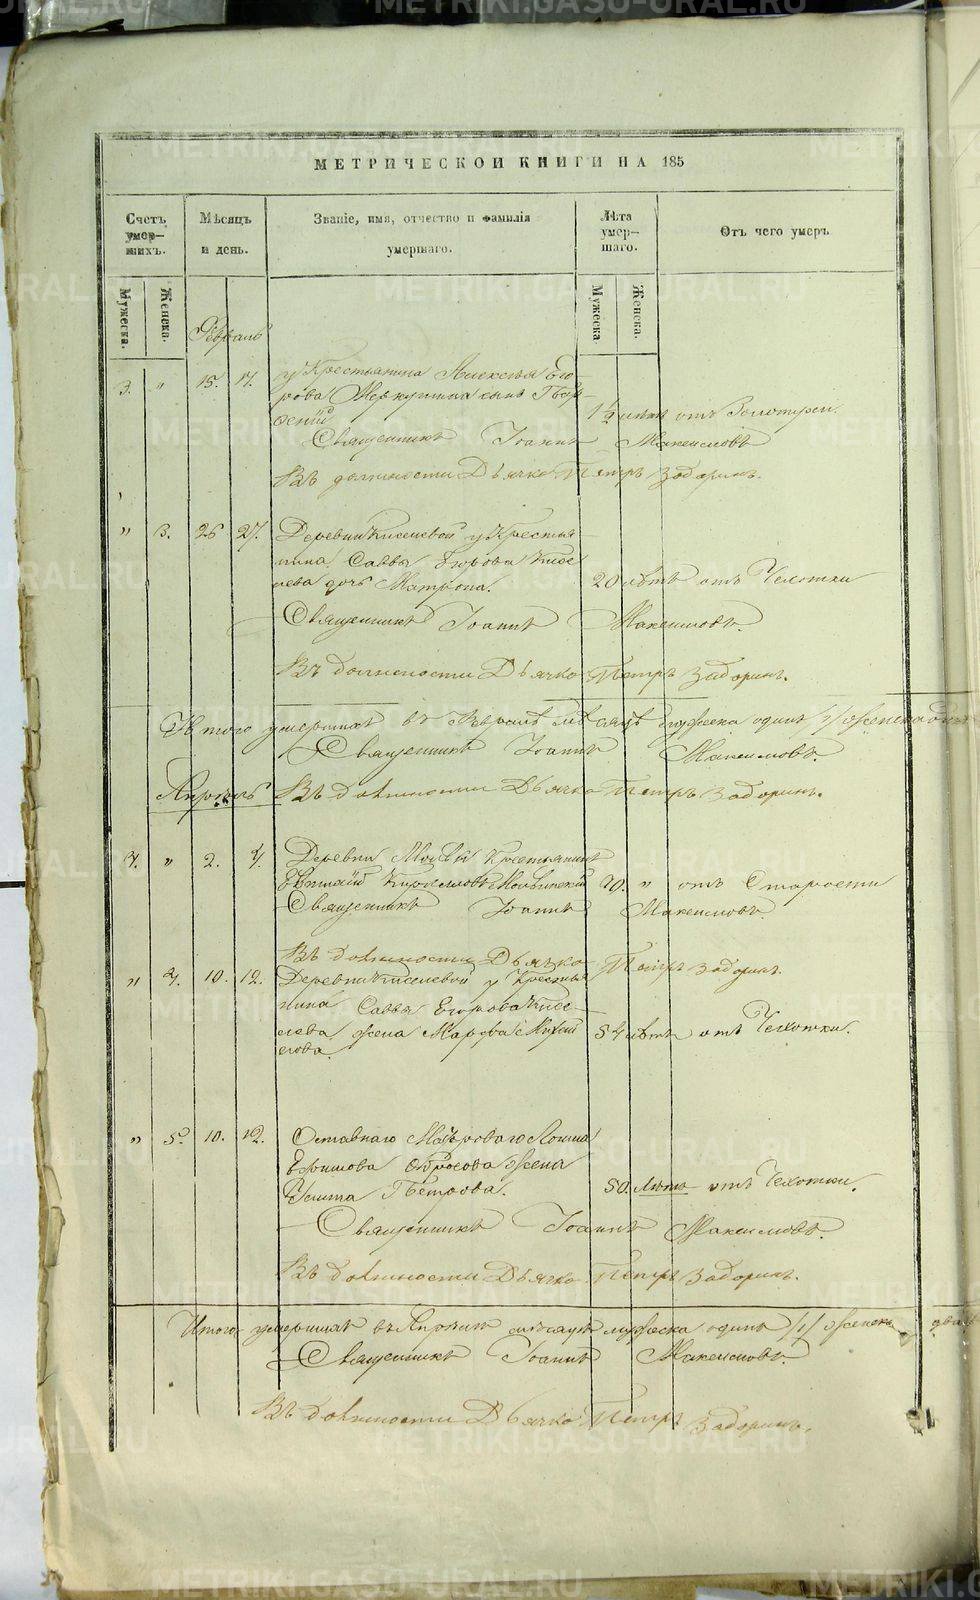 МЕТРИЧЕСКОИ КНИГИ НА 185
Счетъ умер-шихъ.
Мѣсяцъ и день.
Званіе, имя, отчество и фамилія умершаго.
Лѣта умер-шаго.
Отъ чего умеръ
Мужеска.
Женска.
Мужеска
Женска.
Февраль
3. " 15. 17. у Крестьянина Алексѣя Его-
рова Меркушина сынъ
1½ лѣтъ отъ Золотухи.
Священникъ Іоаннъ Максимовъ
Въ должности Дьячка Петръ Задоринъ.
" 3. 26 27. Деревни Киселевой у Крестья-
нина Саввы Егорова Кисе-
лева дочь Матрона. 20 лѣтъ отъ Чехотки
Священникъ Іоаннъ Максимовъ.
Въ должности Дьячка Петръ Задоринъ.
Итого умершихъ въ Февралѣ мѣсяцѣ мужеска одинъ /1/ женска
Священникъ Іоаннъ Максимовъ.
Апрѣль Въ должности Дьячка Петръ Задоринъ.
4. " 2. 4. Деревни Крестьянинъ
70. " отъ Старости
Священникъ Іоаннъ Максимовъ.
Въ должности Дьячка Петръ Задоринъ.
" 4. 10. 12. Деревни Киселевой у Крестья-
нина Саввы Егорова Кисе-
лева жена Марфа 54 лѣтъ отъ Чехотки.
" 5. 10. 12. Оставнаго
Ефимова жена
Петрова. 50. лѣтъ отъ Чехотки.
Священникъ Іоаннъ Максимовъ.
Въ должности Дьячка Петръ Задоринъ.
Итого умершихъ въ Апрѣлѣ мѣсяцѣ мужеска одинъ /1/ женска два
Священникъ Іоаннъ Максимовъ.
Въ должности Дьячка Петръ Задоринъ.
METRIKI.GASO-URAL.RU